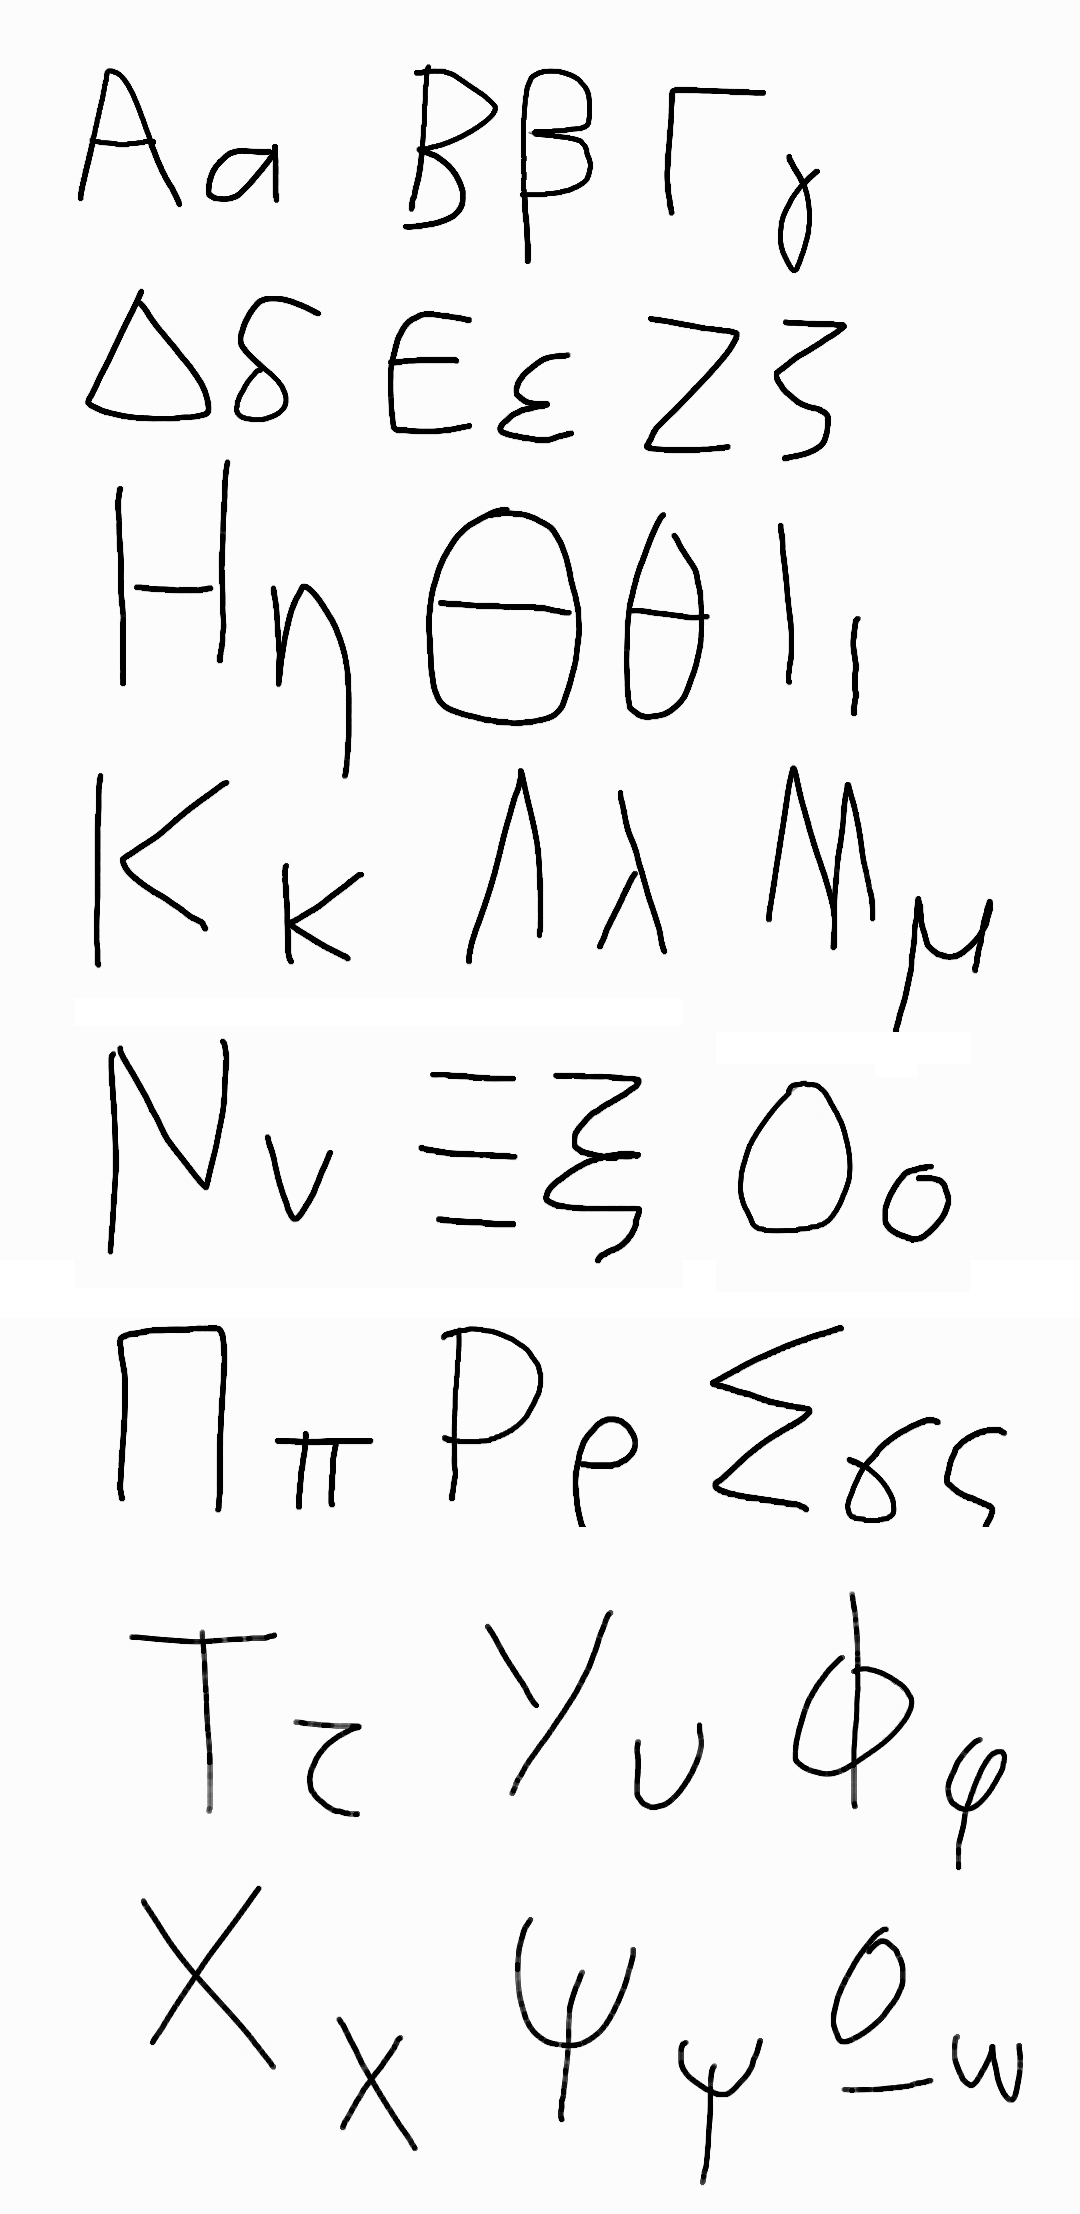 Αα Ββ Γγ
Δδ Εε Ζζ
Ηη Θθ Ιι
Κκ Λλ Μμ
Νν Ξξ Οο
Ππ Ρρ Σσς
Ττ Υυ Φφ
Χχ Ψψ Ωω